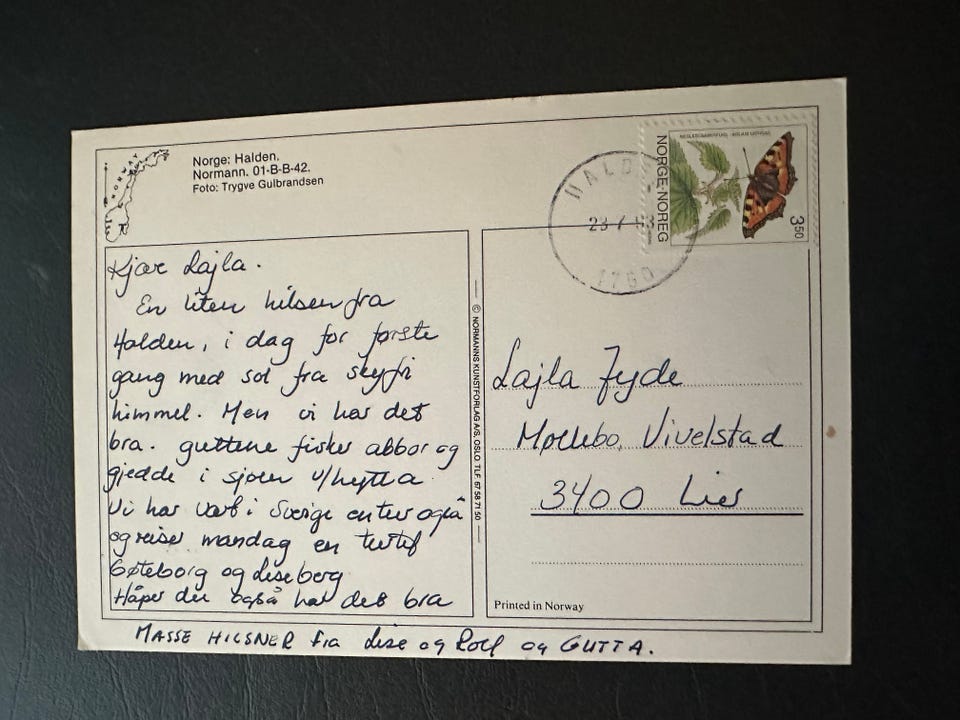 NORWAY
Norge: Halden.
Normann. 01-B-B-42.
Foto: Trygve Gulbrandsen
HALDEN
23 7 93
1760
NORGE·NOREG
350
Kjære Lajla.
En liten hilsen fra
Halden, i dag for første
gang med sol fra skyfri
himmel. Men vi har det
bra. guttene fisker abbor og
gjedde i sjøen v/hytta
Vi har vært i Sverige en tur også
og reiser mandag en tur til
Gøteborg og Liseberg
Håper du også har det bra
MASSE HILSNER fra Lise og Rolf og GUTTA.
© NORMANNS KUNSTFORLAG A/S, OSLO TLF. 67 58 71 50
Lajla Fyde
Møllebo, Vivelstad
3400 Lier
Printed in Norway